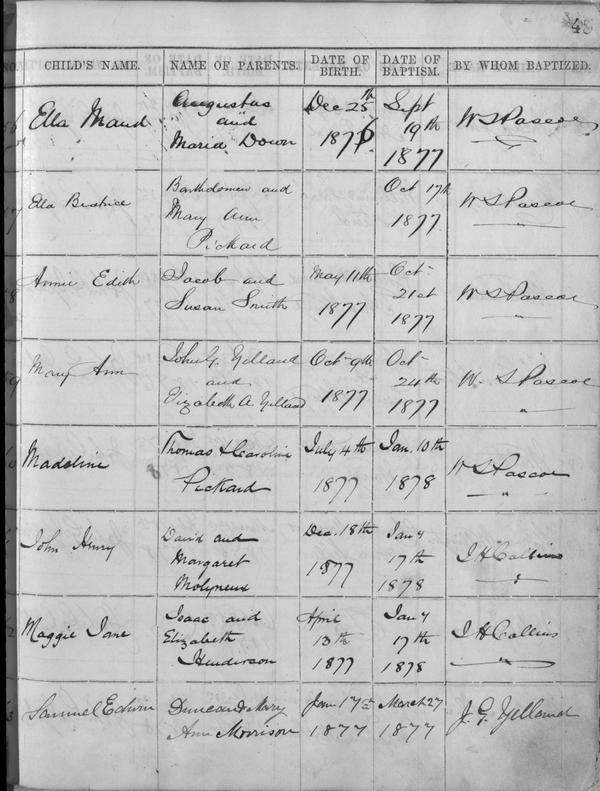 43
CHILD'S NAME. NAME OF PARENTS. DATE OF BIRTH. DATE OF BAPTISM. BY WHOM BAPTIZED.
Ella Maud Augustas and Maria Down Dec 25th 1876 Sept 19th 1877 W S Pascoe
Ella Beatrice Bartholomew and Mary Ann Pickard Oct 17th 1877 W S Pascoe
Annie Edith Jacob and Susan Smith May 11th 1877 Oct 21st 1877 W S Pascoe
Mary Ann John G. Yelland and Elizabeth A Yelland Oct 9th 1877 Oct 24th 1877 W. S Pascoe
Madeline Thomas & Caroline Pickard July 4th 1877 Jan. 10th 1878 W S Pascoe
John Henry David and Margaret Molyneux Dec. 18th 1877 Jany 17th 1878 J H Collins
Maggie Jane Isaac and Elizabeth Henderson April 13th 1877 Jany 17th 1878 J H Collins
Samuel Edwin Duncan & Mary Ann Morrison 1877 March 27 1877 J. G. Yelland